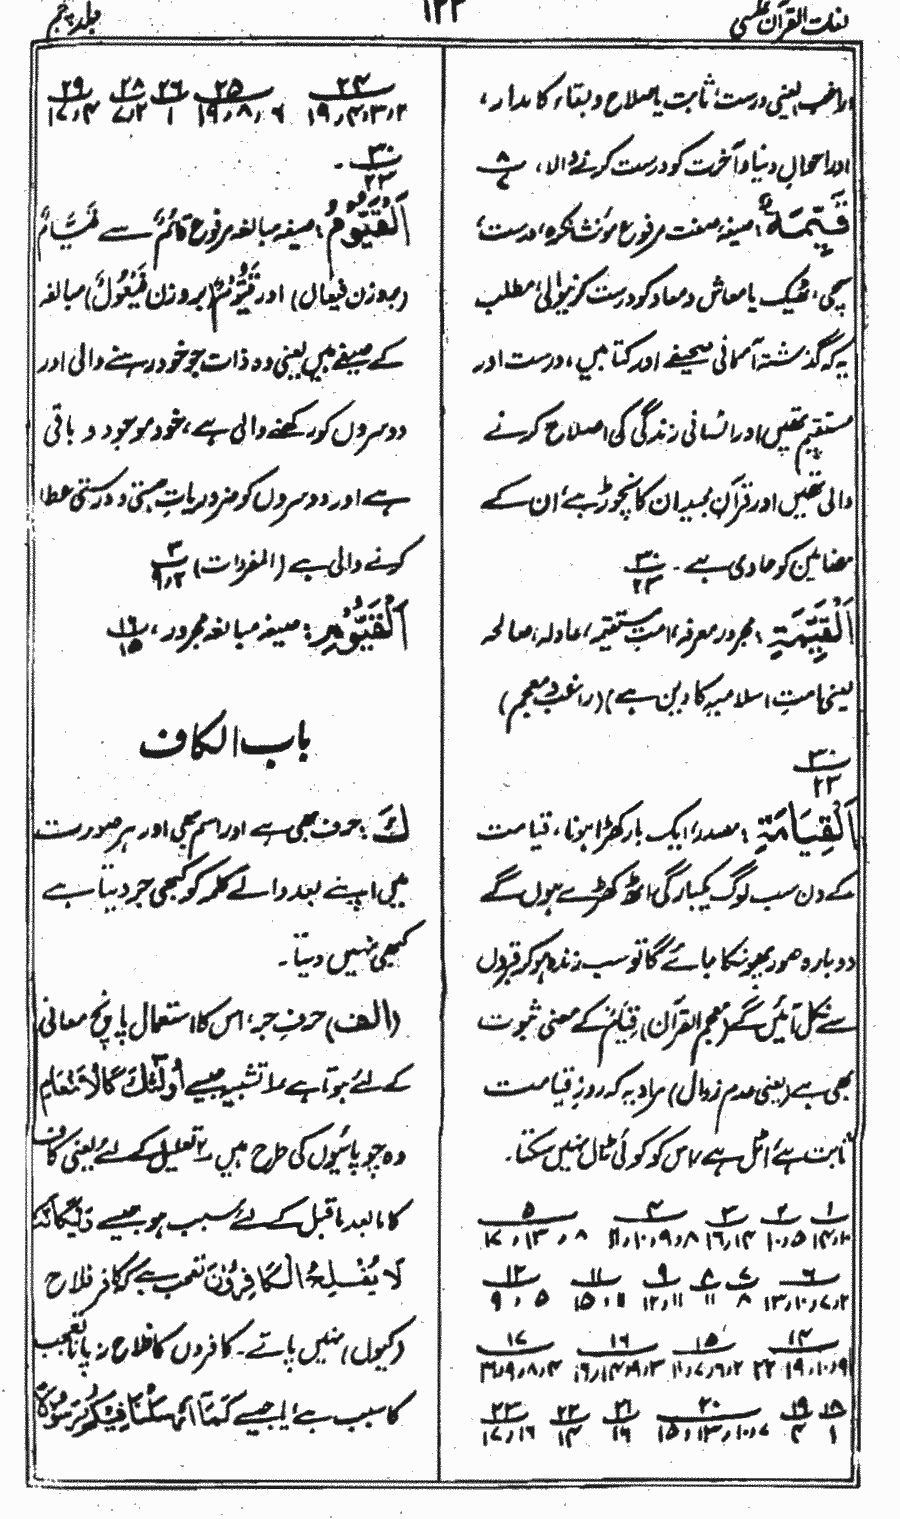 لغات القرآن عکسی
۱۲۲
جلد پنجم
الراغب یعنی درست، ثابت یا صلاح و بقاء کا مدار،
اور احوال دنیا و آخرت کو درست کرنے والا، ۸
۷
قَيِّمَةٌ: صیغہ صفت مرفوع مؤنث نکرہ، درست،
سچی، ٹھیک یا معاش و معاد کو درست کرنیوالی، مطلب
یہ کہ گذشتہ آسمانی صحیفے اور کتابیں، درست اور
مستقیم تھیں اور انسانی زندگی کی اصلاح کرنے
والی تھیں اور قرآن مجید ان کا نچوڑ ہے، ان کے
مضامین کو حاوی ہے۔ ۳۰
۲۳
اَلْقَيِّمَةِ: مجرور معرفہ، امت مستقیمہ، عادلہ، صالحہ
یعنی امت اسلامیہ کا دین ہے) (راغب و معجم)
۳۰
۲۳
اَلْقِيَامَةِ: مصدر، ایک بار کھڑا ہونا، قیامت
کے دن سب لوگ یکبارگی اٹھ کھڑے ہوں گے
دوبارہ صور پھونکا جائے گا تو سب زندہ ہو کر قبروں
سے نکل آئیں گے (معجم القرآن) قیام کے معنی ثبوت
بھی ہے (یعنی عدم زوال) مراد یہ کہ روز قیامت
ثابت ہے، اٹل ہے، اس کو کوئی ٹال نہیں سکتا۔
۱ ۲ ۳ ۴ ۵
۱۰،۱۴ ۵،۱۰ ۱۴،۱۶ ۸،۹،۱۰،۱۱ ۸، ۱۳، ۱۷
۶ ۷ ۸ ۹ ۱۱ ۱۲
۲،۷،۱۰،۱۳ ۸ ۱۱ ۱۱،۱۲ ۱۱،۱۵ ۵، ۹
۱۴ ۱۵ ۱۶ ۱۷
۹،۱۰،۱۹ ۲۲ ۲،۶،۷،۱۱ ۳،۹،۱۴،۱۶ ۴،۸،۹،۱۶
۱۸ ۱۹ ۲۰ ۲۱ ۲۲ ۲۳
۱ ۴ ۷،۱۰،۱۳،۱۵ ۱۶ ۱۴ ۱۶،۱۷
۲۴ ۲۵ ۲۶ ۲۸ ۲۹
۲،۳،۴،۱۹ ۶،۸،۱۹ ۱ ۲،۷ ۴،۱۷
۳۰ ۔
۲۳
اَلْقَيُّوْمُ: صیغہ مبالغہ مرفوع قائم سے قَيَّامٌ
(بروزن فیعال) اور قَيُّوْمٌ (بروزن فَيْعُوْلٌ) مبالغہ
کے صیغے ہیں یعنی وہ ذات جو خود رہنے والی اور
دوسروں کو رکھنے والی ہے، خود موجود و باقی
ہے اور دوسروں کو ضروریات ہستی و درستی عطا
کرنے والی ہے (المفردات) ۳
۲،۹
اَلْقَيُّوْمِ: صیغہ مبالغہ مجرور، ۱۶
۱۵
باب الکاف
كَ: حرف بھی ہے اور اسم بھی اور ہر صورت
میں اپنے بعد والے کلمہ کو کبھی جر دیتا ہے
کبھی نہیں دیتا۔
(الف) حرف جر، اس کا استعمال پانچ معانی
کے لئے ہوتا ہے ۱ تشبیہ جیسے اُولٰٓئِكَ كَالْاَنْعَامِ
وہ چوپائیوں کی طرح ہیں ۲ تعلیل کے لئے یعنی کاف
کا مابعد ماقبل کے لئے سبب ہو جیسے وَيْكَاَنَّهٗ
لَا يُفْلِحُ الْكَافِرُوْنَ تعجب ہے کہ کافر فلاح
(کیوں) نہیں پاتے۔ کافروں کا فلاح نہ پانا تعجب
کا سبب ہے، یا جیسے كَمَا اَرْسَلْنَا فِيْكُمْ رَسُوْلًا